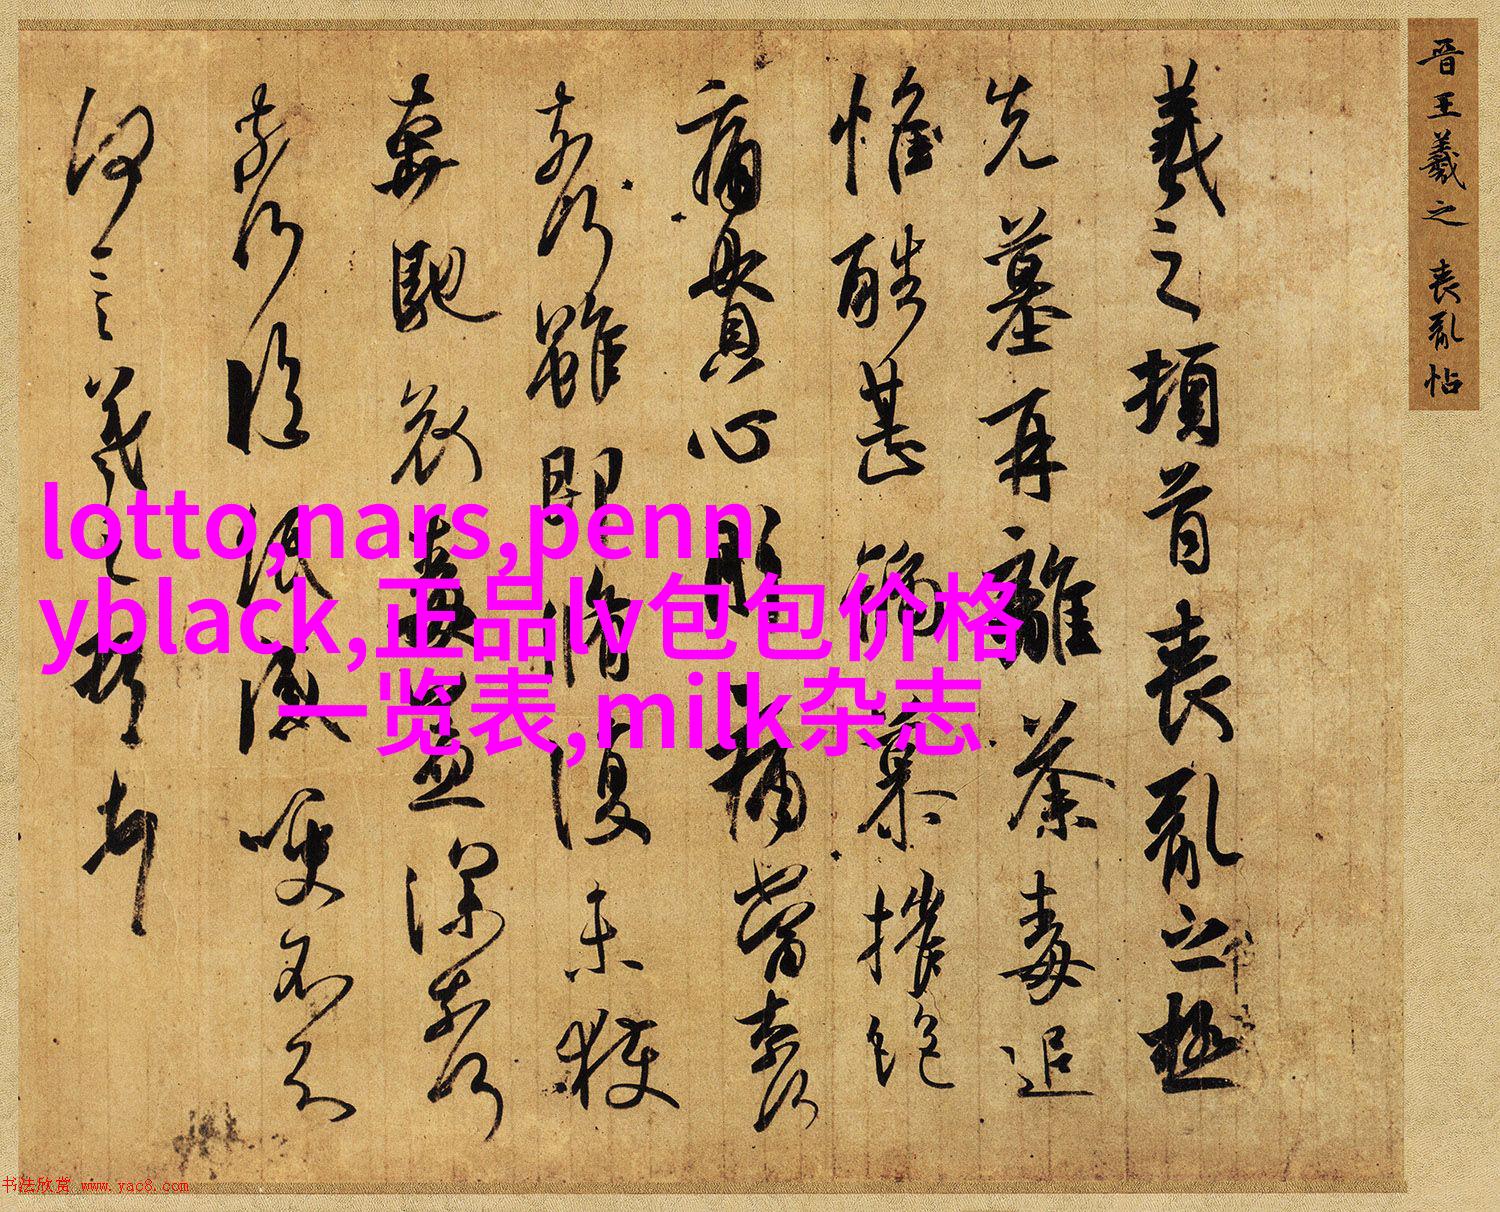 晉王羲之 喪亂帖
羲之頓首喪亂之極
先墓再離荼毒追
惟酷甚號慕摧絕
痛貫心肝痛當奈何
奈何雖即脩復未獲
奔馳哀毒益深奈何
奈何臨紙感哽不知
何言羲之頓首頓首
lotto,nars,penn
yblack,正品lv包包价格
一览表,milk杂志
书法欣赏 www.yac8.com